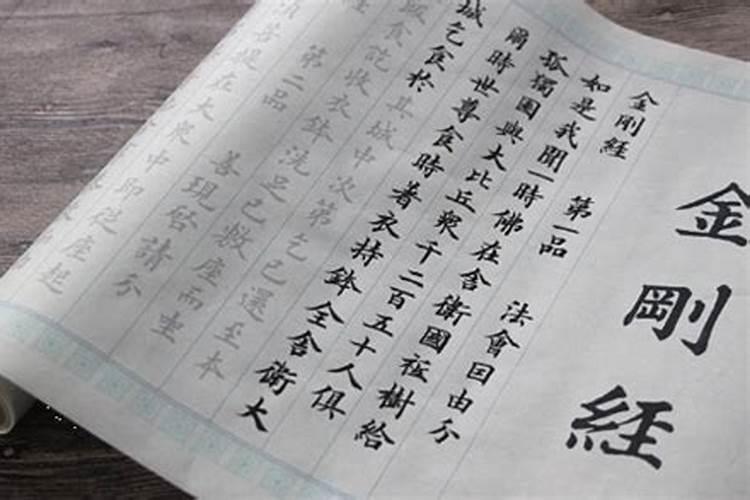 金剛經
金剛經 第一品 法會因由分
如是我聞一時佛在舍衛國祇樹給
孤獨園與大比丘眾千二百五十人俱
爾時世尊食時著衣持鉢全舍衛大
城乞食於其城中次第乞已還至本
飯食訖收衣鉢洗足已敷座而坐
第二品 善現啓請分
須菩提在大眾中即從座起